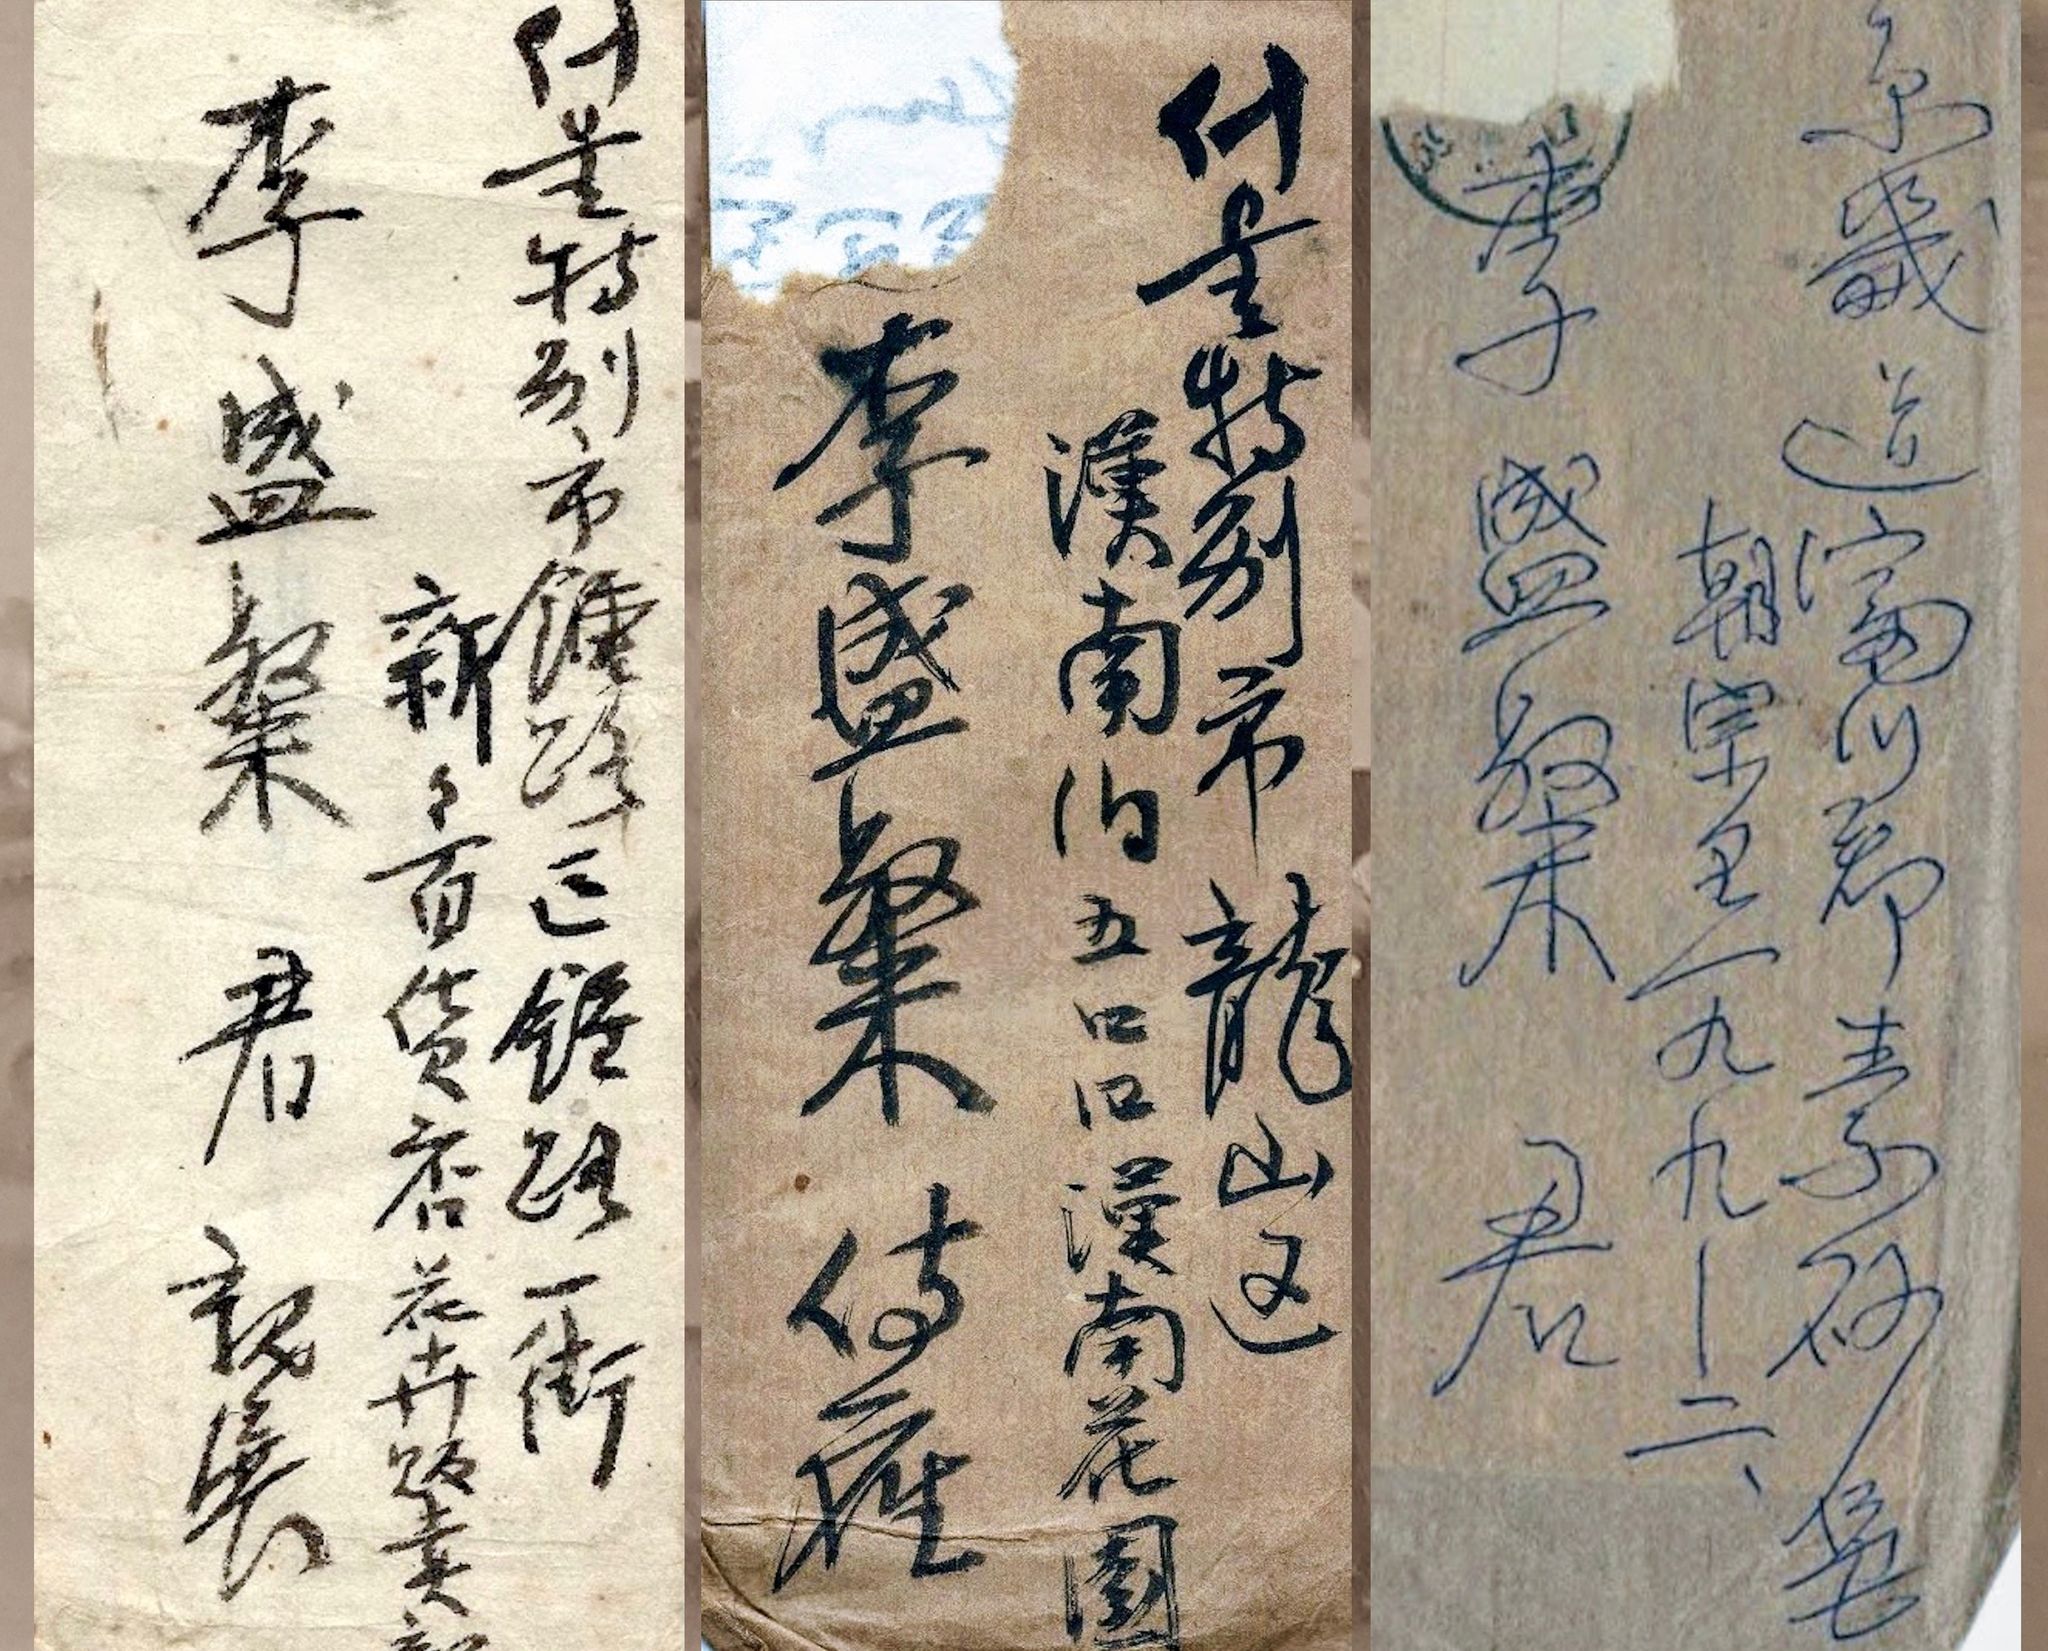 서울特別市鍾路区鍾路一街
新々百貨店花卉販賣部
李盛粲 君 親展
서울特別市龍山区
漢南洞五 漢南花園
李盛粲 侍
京畿道富川郡素砂邑
朝宗里一九九ー二、
李盛粲 君